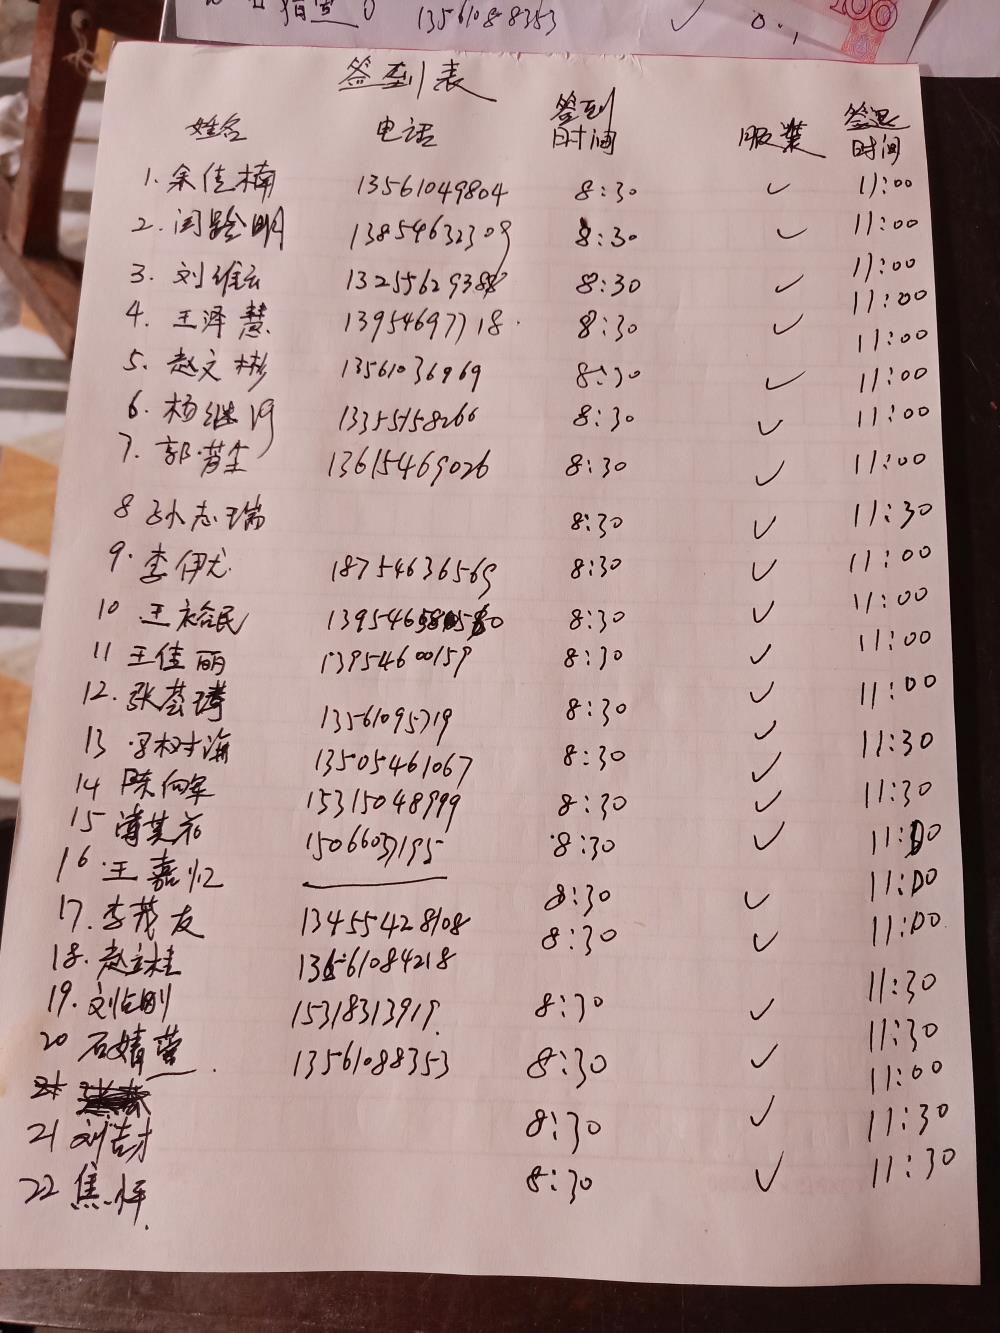 13561088353 ✓
100
签到表
姓名 电话 签到时间 服装 签退时间
1. 余佳楠 13561049804 8:30 ✓ 11:00
2. 闫龄明 13854632309 8:30 ✓ 11:00
3. 刘维云 1325562938 8:30 ✓ 11:00
4. 王泽慧 13954697718 8:30 ✓ 11:00
5. 赵文彬 13561036969 8:30 ✓ 11:00
6. 杨继 13355158266 8:30 ✓ 11:00
7. 郭 13615469026 8:30 ✓ 11:00
8 孙志瑞 8:30 ✓ 11:30
9. 李伊尤 18754636569 8:30 ✓ 11:00
10 王裕民 1395465 8:30 ✓ 11:00
11 王佳丽 13954600159 8:30 ✓ 11:00
12. 张荟 13561095719 8:30 ✓ 11:00
13 树海 13505461067 8:30 ✓ 11:30
14 陈向军 15315048999 8:30 ✓ 11:30
15 英花 15066037195 8:30 ✓ 11:00
16. 王嘉忆 8:30 ✓ 11:00
17. 李茂友 13455428108 8:30 ✓ 11:00
18. 赵立桂 13561084218 11:30
19. 刘占刚 15318313919 8:30 ✓ 11:30
20 石婧萱 13561088353 8:30 ✓ 11:00
21 刘吉才 8:30 ✓ 11:30
22 焦 8:30 ✓ 11:30